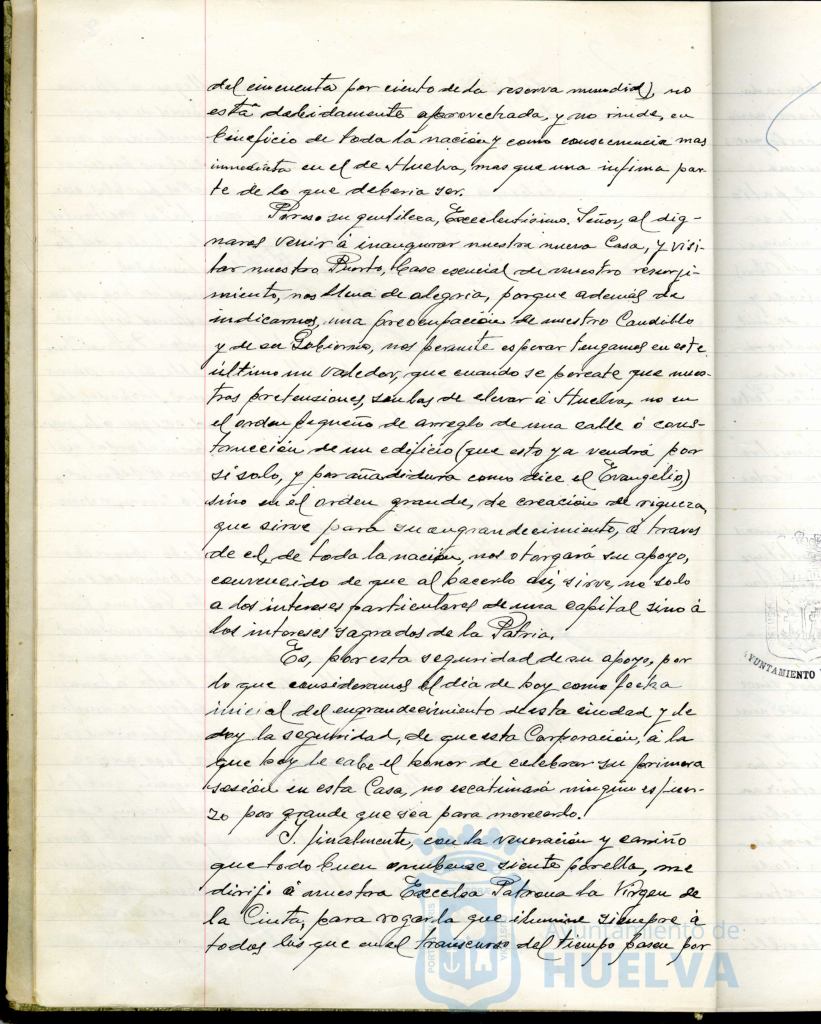 del cincuenta por ciento de la reserva mundial), no
está debidamente aprovechada, y no rinde, en
beneficio de toda la nación y como consecuencia mas
inmediata en el de Huelva, mas que una infima par-
te de lo que deberia ser.
Por eso su gentileza, Excelentisimo. Señor, al dig-
naros venir á inaugurar nuestra nueva Casa, y visi-
tar nuestro Puerto, base esencial de nuestro resurji-
miento, nos llena de alegria, porque además de
indicarnos, una preocupación de nuestro Caudillo
y de su Gobierno, nos permite esperar tengamos en este
último un valedor, que cuando se percate que nues-
tras pretensiones, son las de elevar á Huelva, no en
el orden pequeño de arreglo de una calle ó cons-
trucción de un edificio (que esto ya vendrá por
si solo, y por añadidura como dice el Evangelio,)
sino en el orden grande, de creación de riqueza,
que sirve para su engrandecimiento, á traves
de el, de toda la nación, nos otorgará su apoyo,
convencido de que al hacerlo asi, sirve, no solo
a los intereses particulares de una capital sino á
los intereses sagrados de la Patria.
Es, por esta seguridad de su apoyo, por
lo que consideramos el dia de hoy como fecha
inicial del engrandecimiento de esta ciudad y le
doy la seguridad, de que esta Corporación, á la
que hoy le cabe el honor de celebrar su primera
sesión en esta Casa, no escatimará ningún esfuer-
zo por grande que sea para merecerlo.
Y finalmente, con la veneración y cariño
que todo buen onubense siente por ella, me
dirijo á nuestra Excelsa Patrona la Virgen de
la Cinta, para rogarla que ilumine siempre á
todos los que en el transcurso del tiempo pasen por
AYUNTAMIENTO
Ayuntamiento de
HUELVA